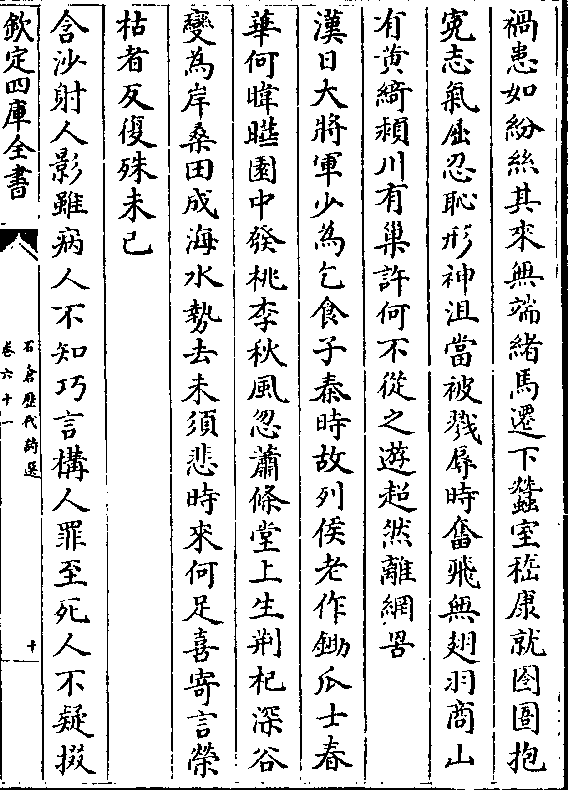 禍患如紛絲其來無端緒馬遷下蠶室嵇康就囹圄抱
寃志氣屈忍恥形神沮當被戮辱時奮飛無翅羽商山
有黄綺潁川有巢許何不從之遊超然離網罟
漢日大將軍少為乞食子秦時故列侯老作鋤瓜士春
華何暐曄園中發桃李秋風忽蕭條堂上生荆杞深谷
變為岸桑田成海水勢去未須悲時來何足喜寄言榮
枯者反復殊未已
含沙射人影雖病人不知巧言構人罪至死人不疑掇
欽定四庫全書
石倉歷代詩選
卷六十一
十